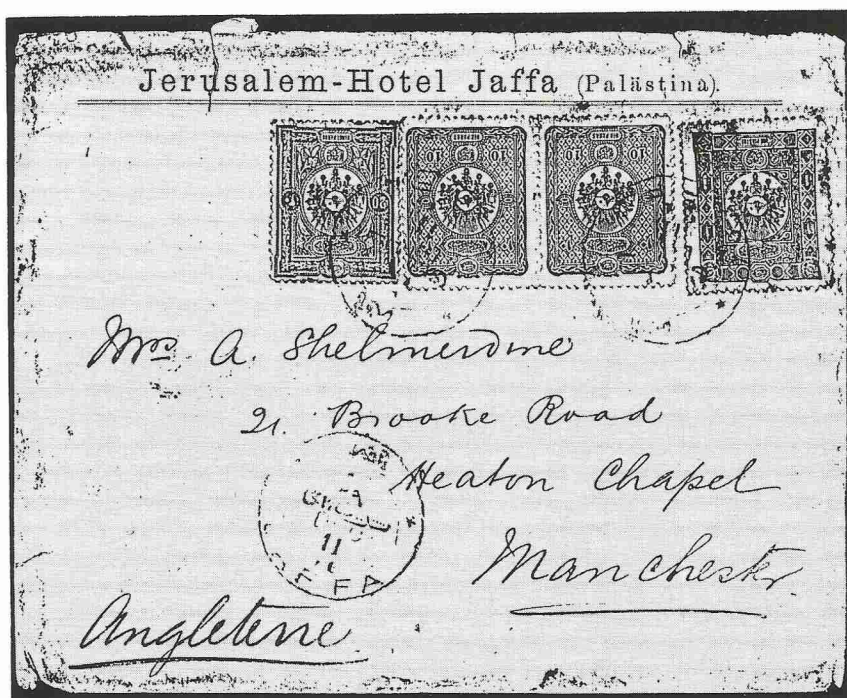 Jerusalem-Hotel Jaffa (Palästina).
10 10 10 10
Mrs A. Shelmerdine
21. Brooke Road
Heaton Chapel
Manchester.
11
Angleterre.